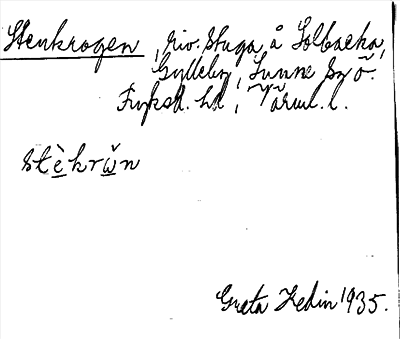 Stenkrogen, riv. stuga å Solbacka,
Gylleby, Sunne sn ö.
Fryksd. hd, Värml. l.
stèkrω̌n
Greta Hedin 1935.